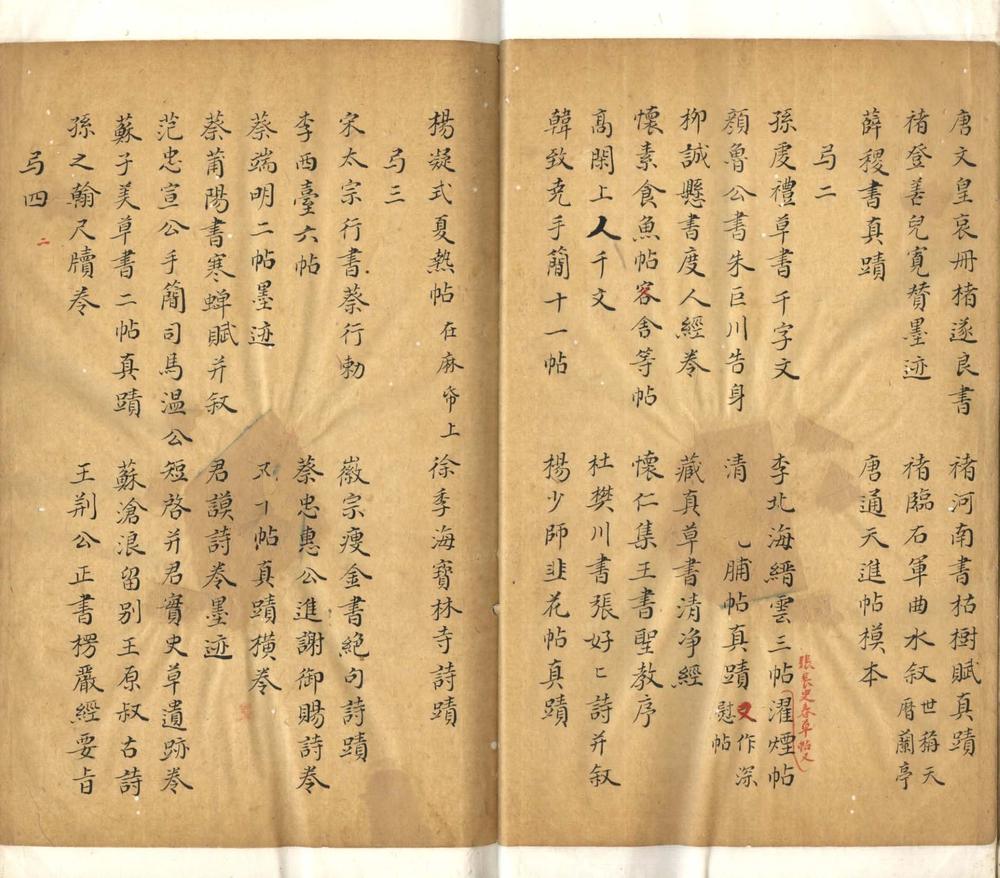 唐文皇哀冊褚遂良書 褚河南書枯樹賦真蹟
褚登善兒寬贊墨迹 褚臨右軍曲水叙世稱天曆蘭亭
薛稷書真蹟 唐通天進帖模本
弓二
孫虔禮草書千字文 李北海縉雲三帖 濯煙帖
張長史春草帖又
顏魯公書朱巨川告身 清 乚脯帖真蹟 又作深慰帖
柳誠懸書度人經卷 藏真草書清淨經
懷素食魚帖客舍等帖 懷仁集王書聖教序
高閑上人千文 杜樊川書張好〻詩并叙
韓致尭手簡十一帖 楊少師韭花帖真蹟
楊凝式夏熱帖在麻帋上 徐季海寶林寺詩蹟
弓三
宋太宗行書蔡行勅 徽宗瘦金書絶句詩蹟
李西臺六帖 蔡忠惠公進謝御賜詩卷
蔡端明二帖墨迹 又 帖真蹟橫卷
蔡莆陽書寒蟬賦并叙 君謨詩卷墨迹
范忠宣公手簡司馬温公短啓并君實史草遺跡卷
蘇子美草書二帖真蹟 蘇滄浪留别王原叔古詩
孫之翰尺牘卷 王荆公正書楞嚴經要旨
弓四
二